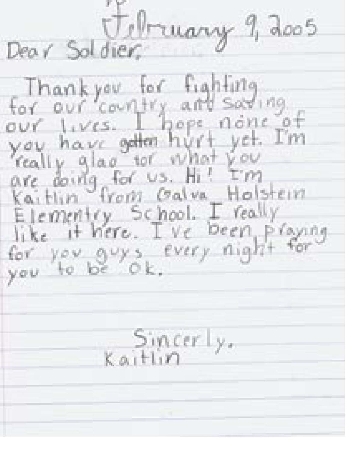 February 9, 2005
Dear Soldier,
Thank you for fighting
for our country and saving
our lives. I hope none of
you have gotten hurt yet. I'm
really glad for what you
are doing for us. Hi! I'm
Kaitlin from Galva Holstein
Elementry School. I really
like it here. I've been praying
for you guys every night for
you to be ok.
Sincerly,
Kaitlin